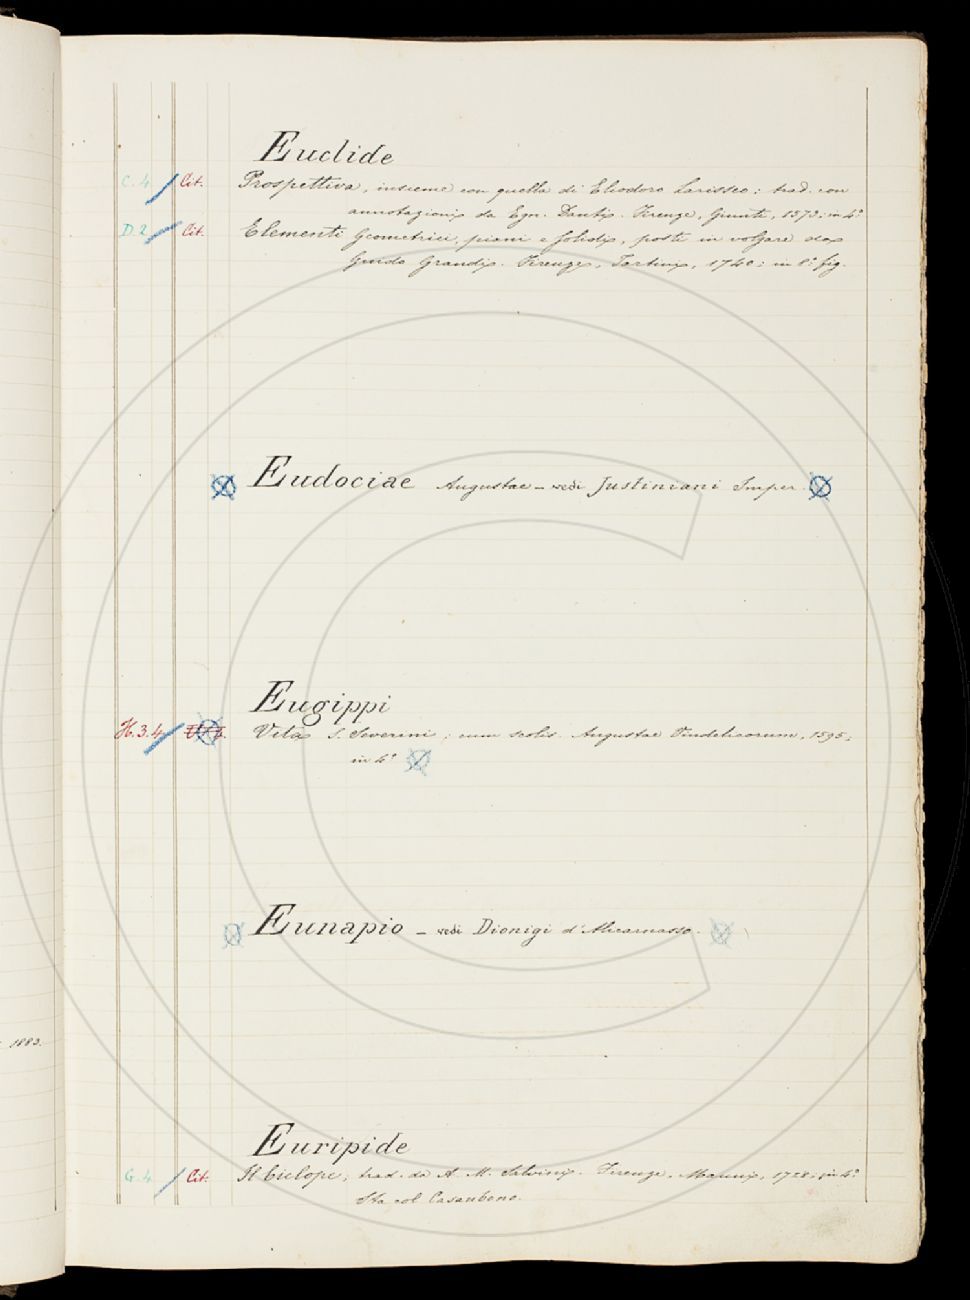 Euclide
C. 4. Cit. Prospettiva, insieme con quella di Eliodoro Larisseo; trad. con
annotazioni da Egn. Danti. Firenze, Giunti, 1573; in 4.º
D. 2. Cit. Elementi Geometrici, piani e solidi, posti in volgare da
Guido Grandi. Firenze, Tartini, 1740; in 8.º fig.
Eudociae Augustae - vedi Justiniani Imper.
Eugippi
H. 3. 4. Vita S. Severini; cum scolis. Augustae Vindelicorum, 1595;
in 4.º
Eunapio - vedi Dionigi d'Alicarnasso.
1883.
Euripide
G. 4. Cit. Il Ciclope; trad. da A. M. Salvini. Firenze, Manni, 1728; in 4.º
Sta col Casaubono.